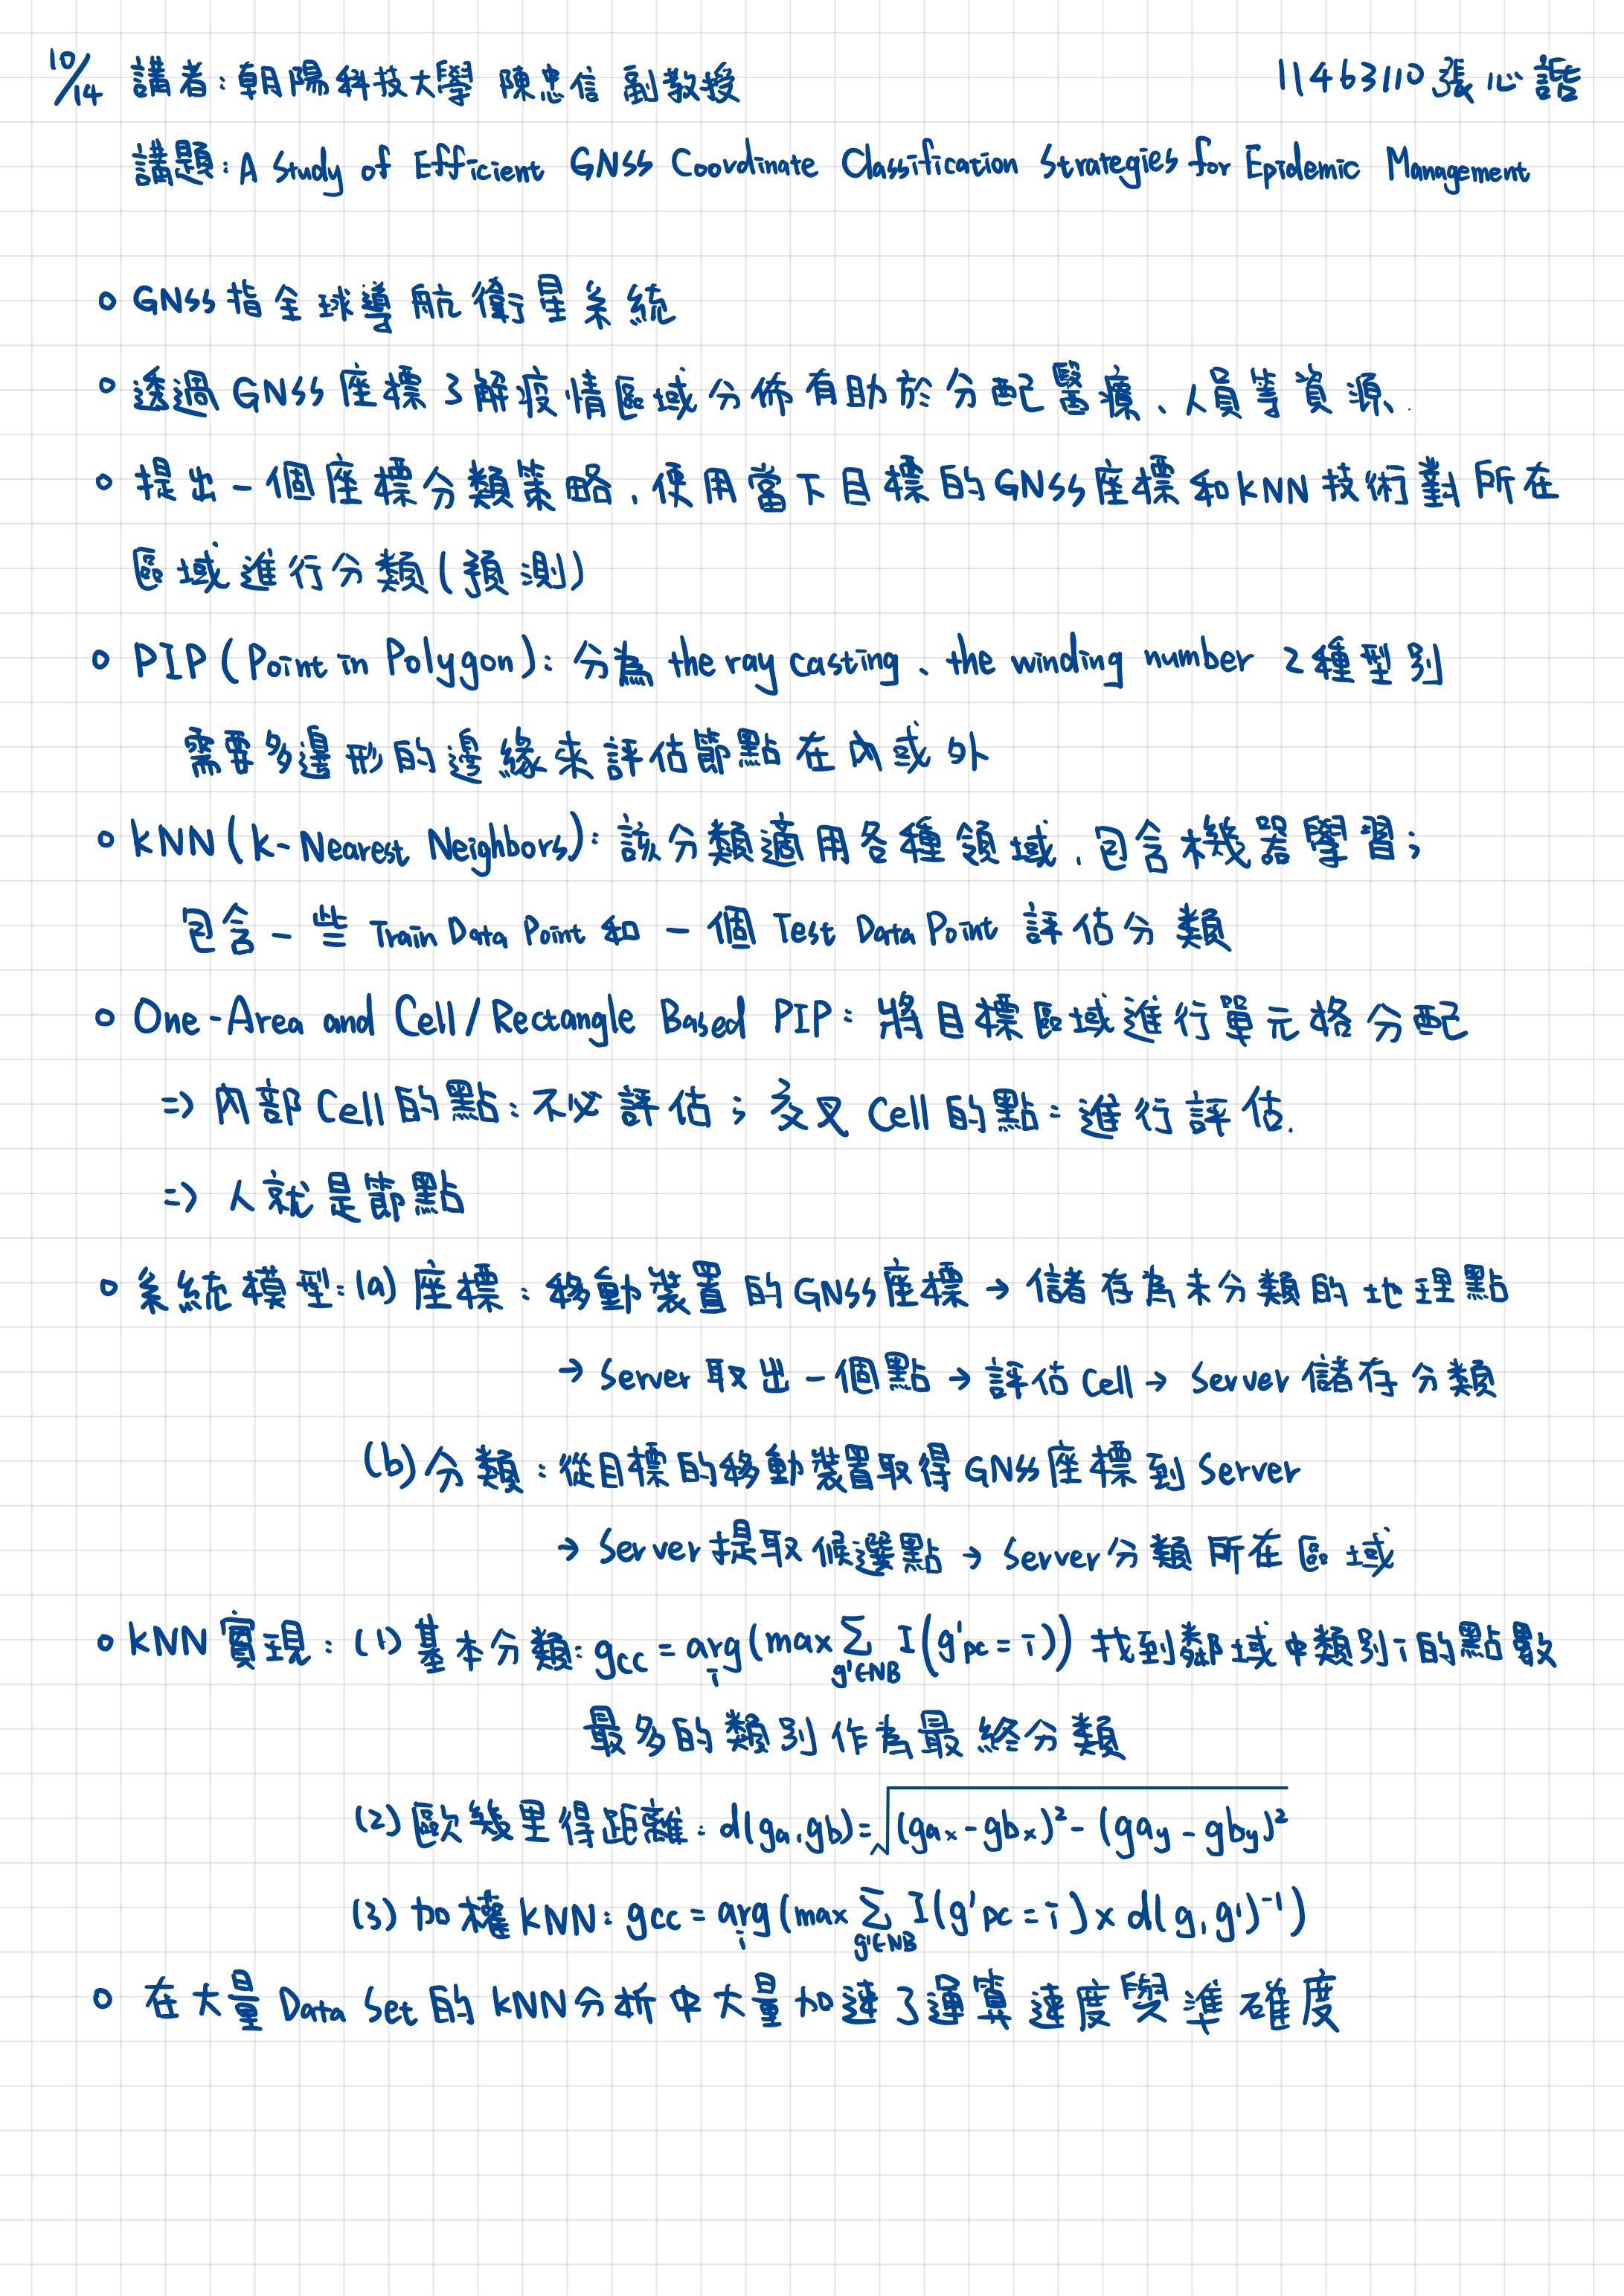 10/14 講者：朝陽科技大學 陳忠信 副教授 11463110 張心語
講題：A Study of Efficient GNSS Coordinate Classification Strategies for Epidemic Management
○ GNSS指全球導航衛星系統
○ 透過GNSS座標了解疫情區域分佈有助於分配醫療、人員等資源、
○ 提出一個座標分類策略，使用當下目標的GNSS座標和KNN技術對所在
區域進行分類(預測)
○ PIP(Point in Polygon)：分為 the ray casting、the winding number 2種型別
需要多邊形的邊緣來評估節點在內或外
○ KNN(K-Nearest Neighbors)：該分類適用各種領域，包含機器學習；
包含一些 Train Data Point 和一個 Test Data Point 評估分類
○ One-Area and Cell/Rectangle Based PIP：將目標區域進行單元格分配
=> 內部Cell的點：不必評估；交叉Cell的點：進行評估.
=> 人就是節點
○ 系統模型：(a) 座標：移動裝置的GNSS座標 → 儲存為未分類的地理點
→ Server 取出一個點 → 評估Cell → Server 儲存分類
(b) 分類：從目標的移動裝置取得GNSS座標到 Server
→ Server提取候選點 → Server分類所在區域
○ KNN實現：(1) 基本分類：gcc = arg_i(max Σ_{g'∈NB} I(g'pc = i)) 找到鄰域中類別i的點數
最多的類別作為最終分類
(2) 歐幾里得距離：d(ga,gb)=√((gax-gbx)²-(gay-gby)²)
(3) 加權KNN：gcc = arg_i(max Σ_{g'∈NB} I(g'pc = i) x d(g,g')⁻¹)
○ 在大量 Data Set 的 KNN分析中大量加速了運算速度與準確度